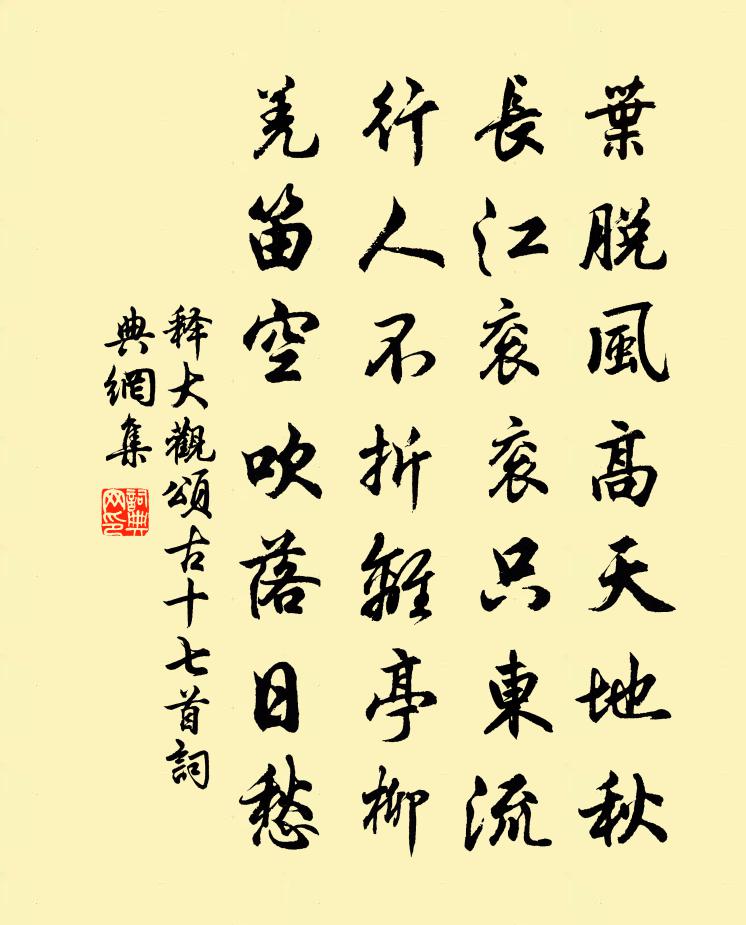 葉脫風高天地秋
長江衮衮只東流
行人不折離亭柳
羌笛空吹落日愁
释大觀頌古十七首詞
典網集
詞典
网印